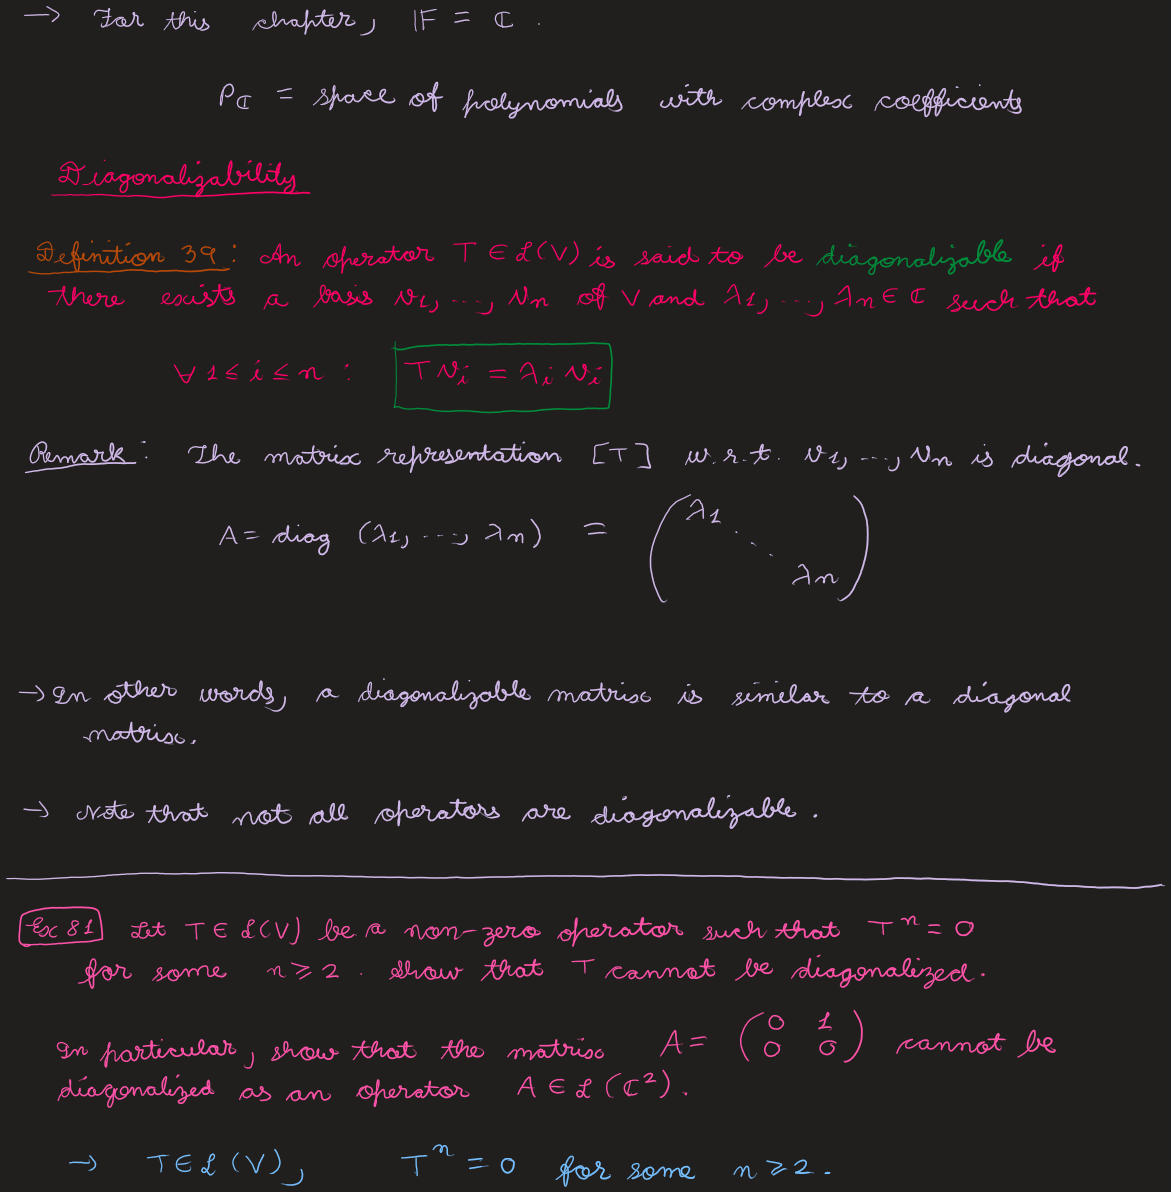 → For this chapter, 𝔽 = ℂ .
P_ℂ = space of polynomials with complex coefficients
Diagonalizability
Definition 39 : An operator T ∈ ℒ(V) is said to be diagonalizable if
there exists a basis v₁, ..., vₙ of V and λ₁, ..., λₙ ∈ ℂ such that
∀ 1 ≤ i ≤ n : T vᵢ = λᵢ vᵢ
Remark : The matrix representation [T] w.r.t. v₁, ..., vₙ is diagonal.
A = diag (λ₁, ..., λₙ) = ( λ₁ ⋱ λₙ )
→ In other words, a diagonalizable matrix is similar to a diagonal
matrix.
→ Note that not all operators are diagonalizable .
Ex 81 Let T ∈ ℒ(V) be a non-zero operator such that Tⁿ = 0
for some n ≥ 2 . Show that T cannot be diagonalized.
In particular, show that the matrix A = ( 0 1 ; 0 0 ) cannot be
diagonalized as an operator A ∈ ℒ (ℂ²).
→ T ∈ ℒ (V), Tⁿ = 0 for some n ≥ 2 .